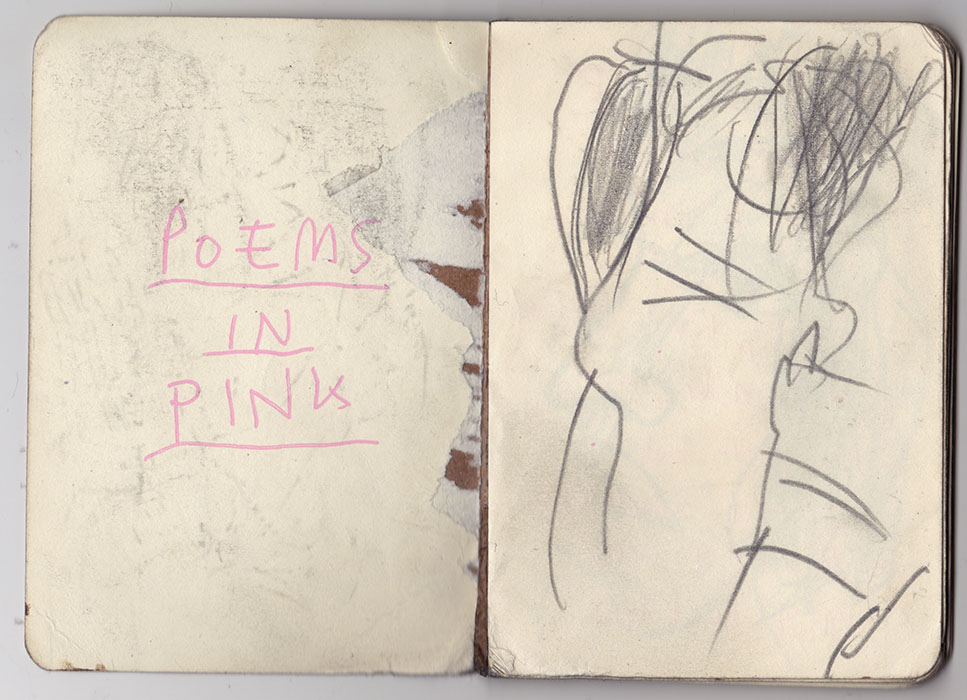 POEMS
IN
PINK